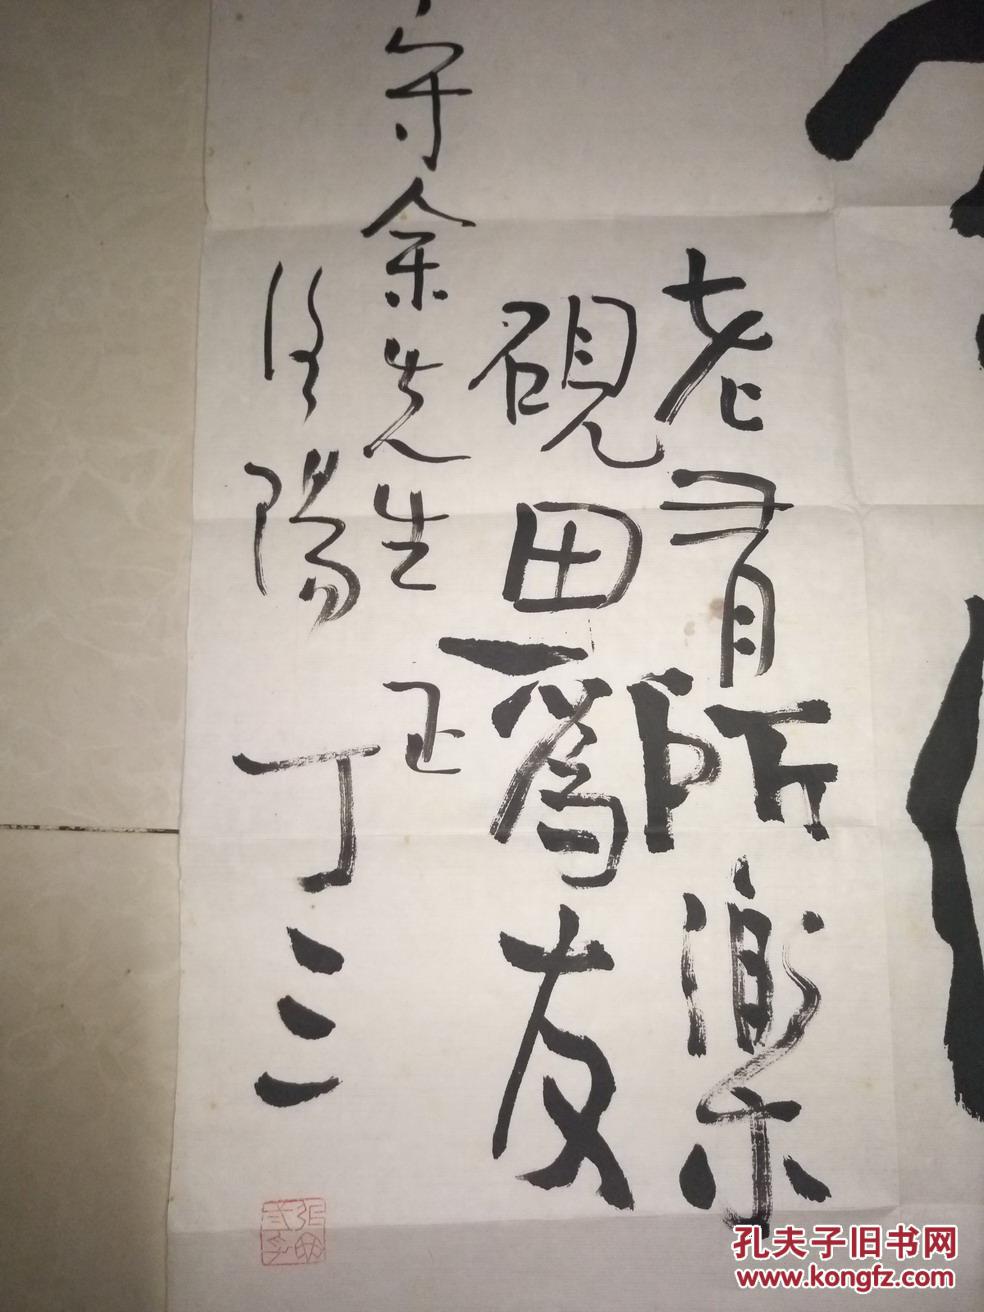 老有所樂
硯田爲友
守余先生正
陽丁三
孔夫子旧书网
www.kongfz.com